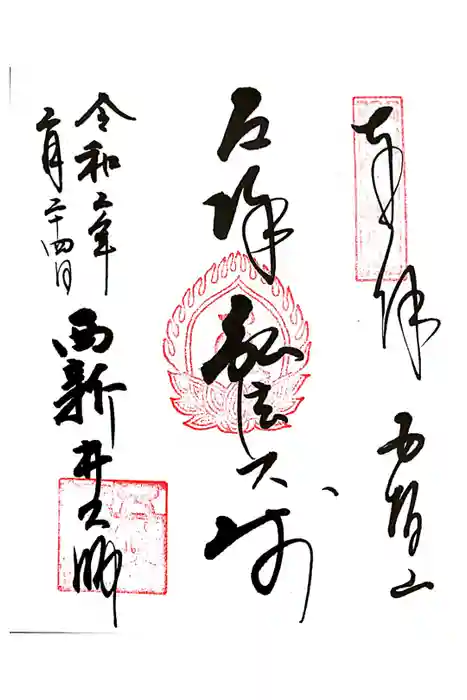 奉拝
五智山
厄除弘法大師
令和二年
二月二十四日
西新井大師